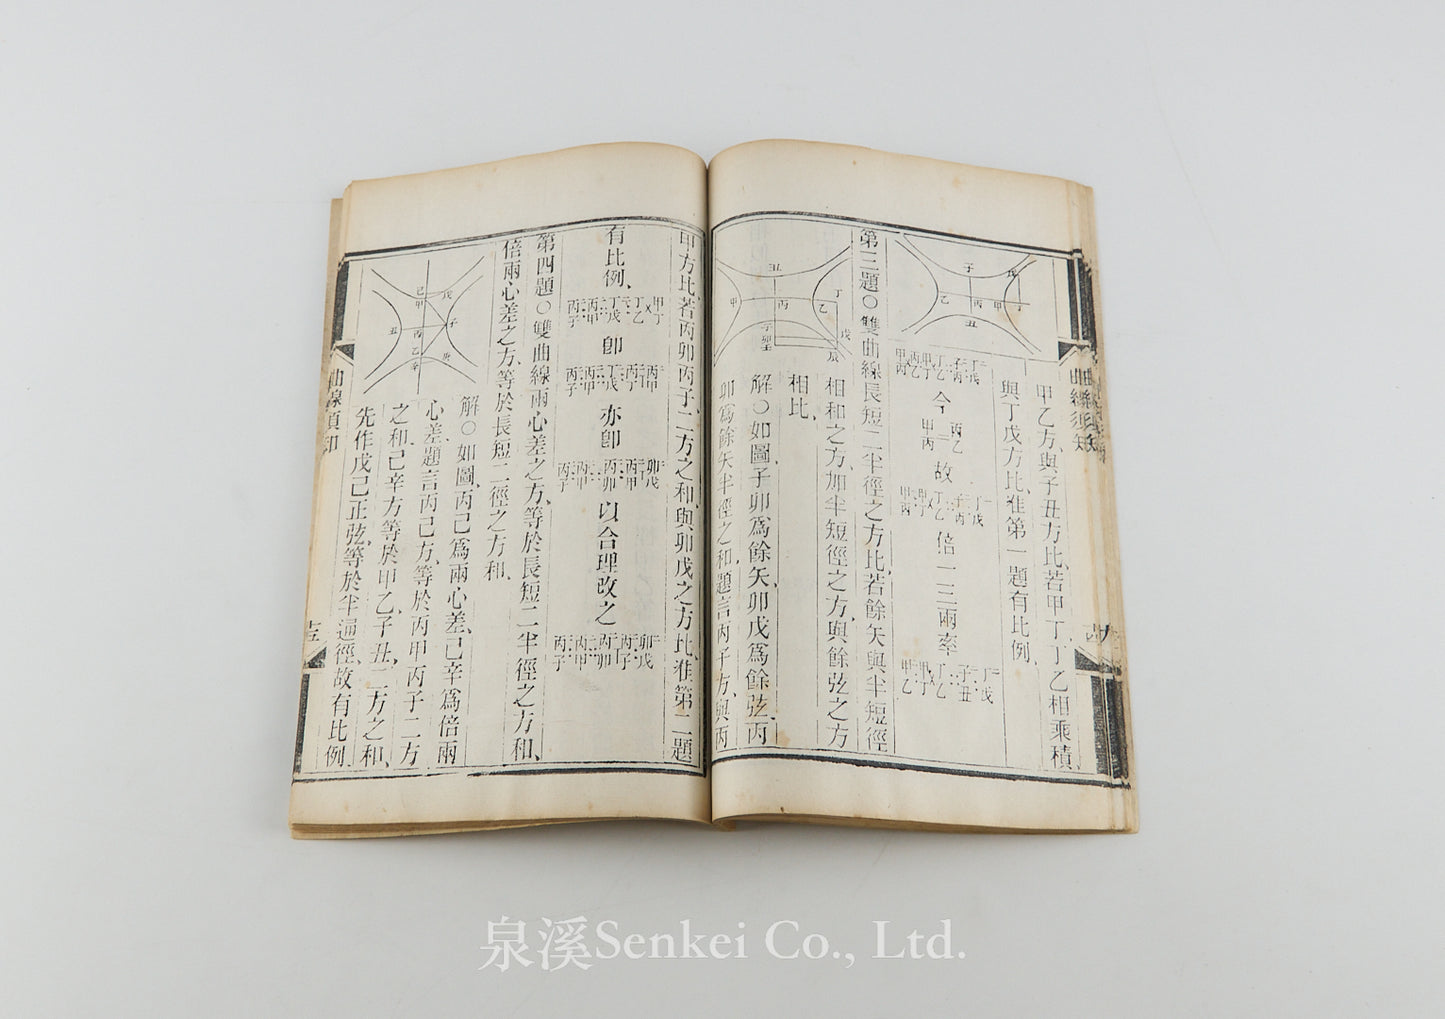 子
戊
乙
丙
甲
丁
丑
甲乙方、與子丑方比、若甲丁丁乙相乘積
與丁戊方比、准第一題有比例、
今
故
倍一三兩率
第三題〇雙曲線長短二半徑之方比、若餘矢與半短徑
相和之方、加半短徑之方、與餘弦之方
相比、
丑
甲
丙
丁
乙
子
卯
戊
辰
解〇如圖、子卯爲餘矢、卯戊爲餘弦、丙
卯爲餘矢半徑之和、題言丙子方、與丙
甲方比、若丙卯丙子二方之和、與卯戊之方比、准第二題
有比例、
卽
亦卽
以合理改之
第四題〇雙曲線兩心差之方、等於長短二半徑之方和、
倍兩心差之方、等於長短二徑之方和、
己
甲
戊
丑
丙
子
乙
庚
辛
解〇如圖、丙己爲兩心差、己辛爲倍兩
心差、題言丙己方、等於丙甲丙子二方
之和、己辛方等於甲乙、子丑、二方之和、
先作戊己正弦、等於半通徑、故有比例、
曲線須知
曲線須知
泉溪Senkei Co., Ltd.